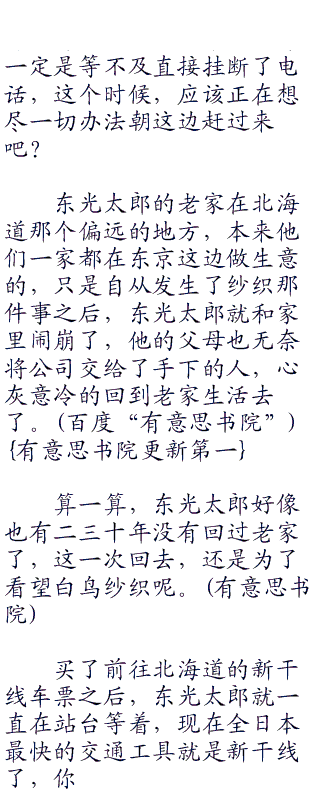 一定是等不及直接挂断了电
话，这个时候，应该正在想
尽一切办法朝这边赶过来
吧？
东光太郎的老家在北海
道那个偏远的地方，本来他
们一家都在东京这边做生意
的，只是自从发生了纱织那
件事之后，东光太郎就和家
里闹崩了，他的父母也无奈
将公司交给了手下的人，心
灰意冷的回到老家生活去
了。(百度“有意思书院”)
{有意思书院更新第一}
算一算，东光太郎好像
也有二三十年没有回过老家
了，这一次回去，还是为了
看望白鸟纱织呢。(有意思书
院)
买了前往北海道的新干
线车票之后，东光太郎就一
直在站台等着，现在全日本
最快的交通工具就是新干线
了，你